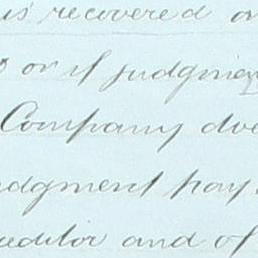 is recovered
or if judgment
Company
judgment pay
creditor and of